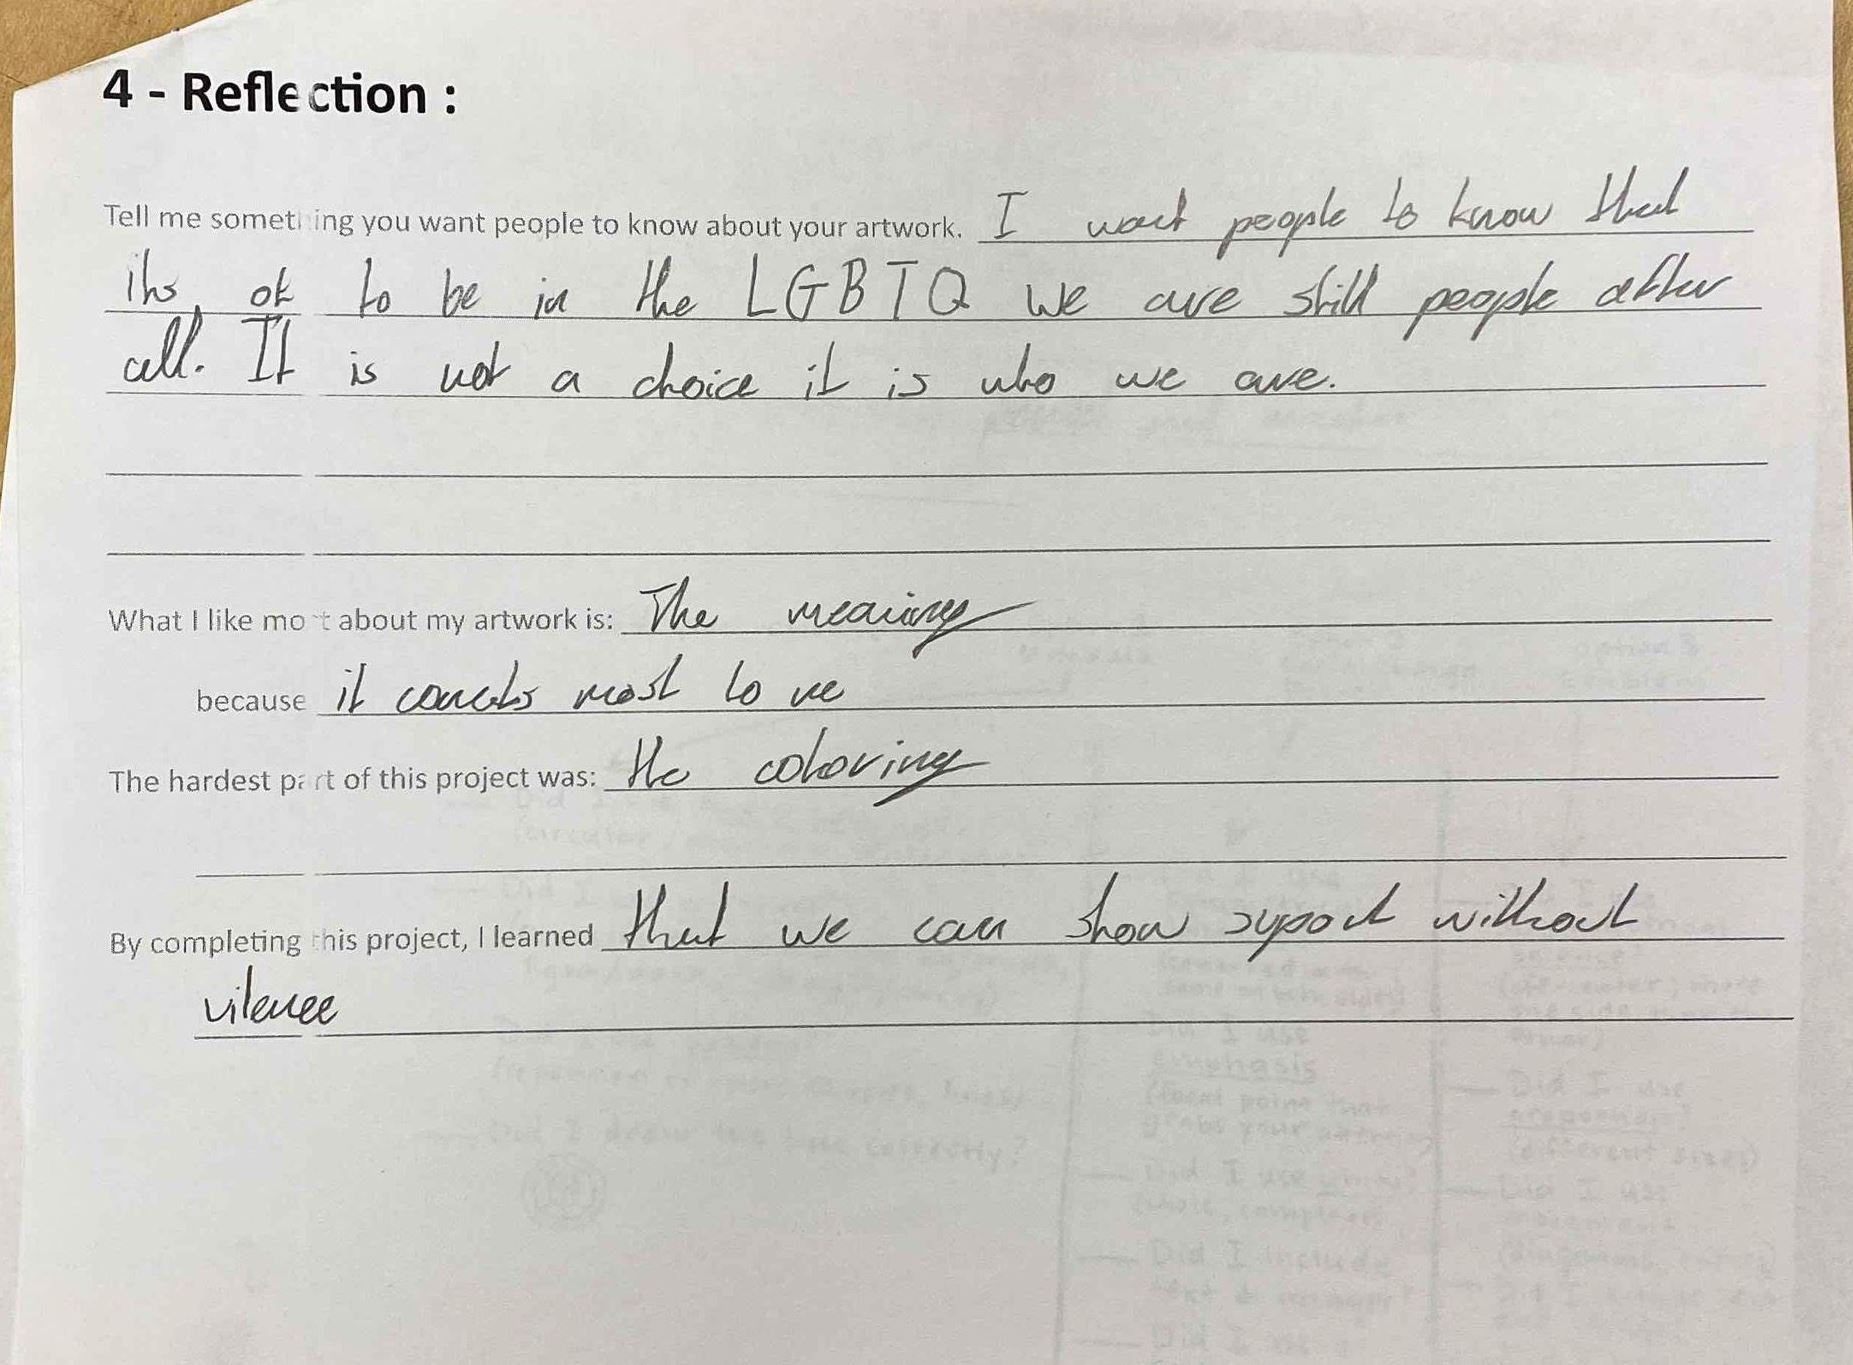 4 - Reflection :
Tell me something you want people to know about your artwork. I want people to know that
its ok to be in the LGBTQ we are still people after
all. It is not a choice it is who we are.
What I like most about my artwork is: The meaning
because it conects most to me
The hardest part of this project was: the coloring
By completing this project, I learned that we can show suport without
vilence